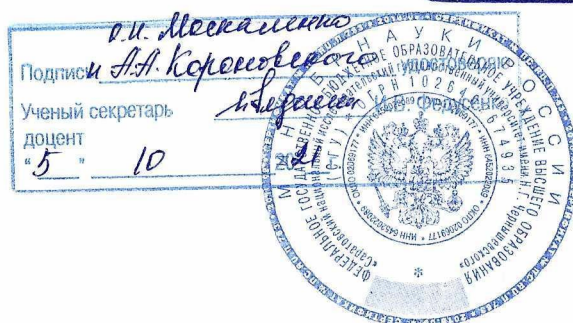 О.И. Москаленко
Подписи А.А. Короновского удостоверяю
Ученый секретарь И.В. Федусенко
доцент
"5" 10 2021
МИНОБРНАУКИ РОССИИ
ФЕДЕРАЛЬНОЕ ГОСУДАРСТВЕННОЕ БЮДЖЕТНОЕ ОБРАЗОВАТЕЛЬНОЕ УЧРЕЖДЕНИЕ ВЫСШЕГО ОБРАЗОВАНИЯ
«Саратовский национальный исследовательский государственный университет имени Н.Г. Чернышевского»
* ИНН 6452022089 * ОКПО 02069177